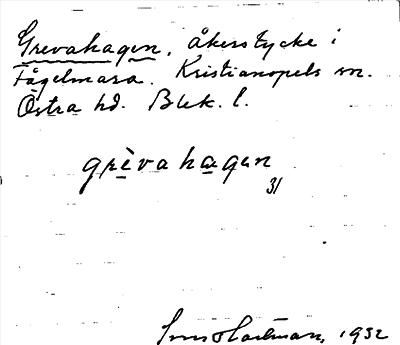 Grevahagen, åkerstycke i
Fågelmara. Kristianopels sn.
Östra hd. Blek. l.
grèvahagen
31
Hartman, 1932